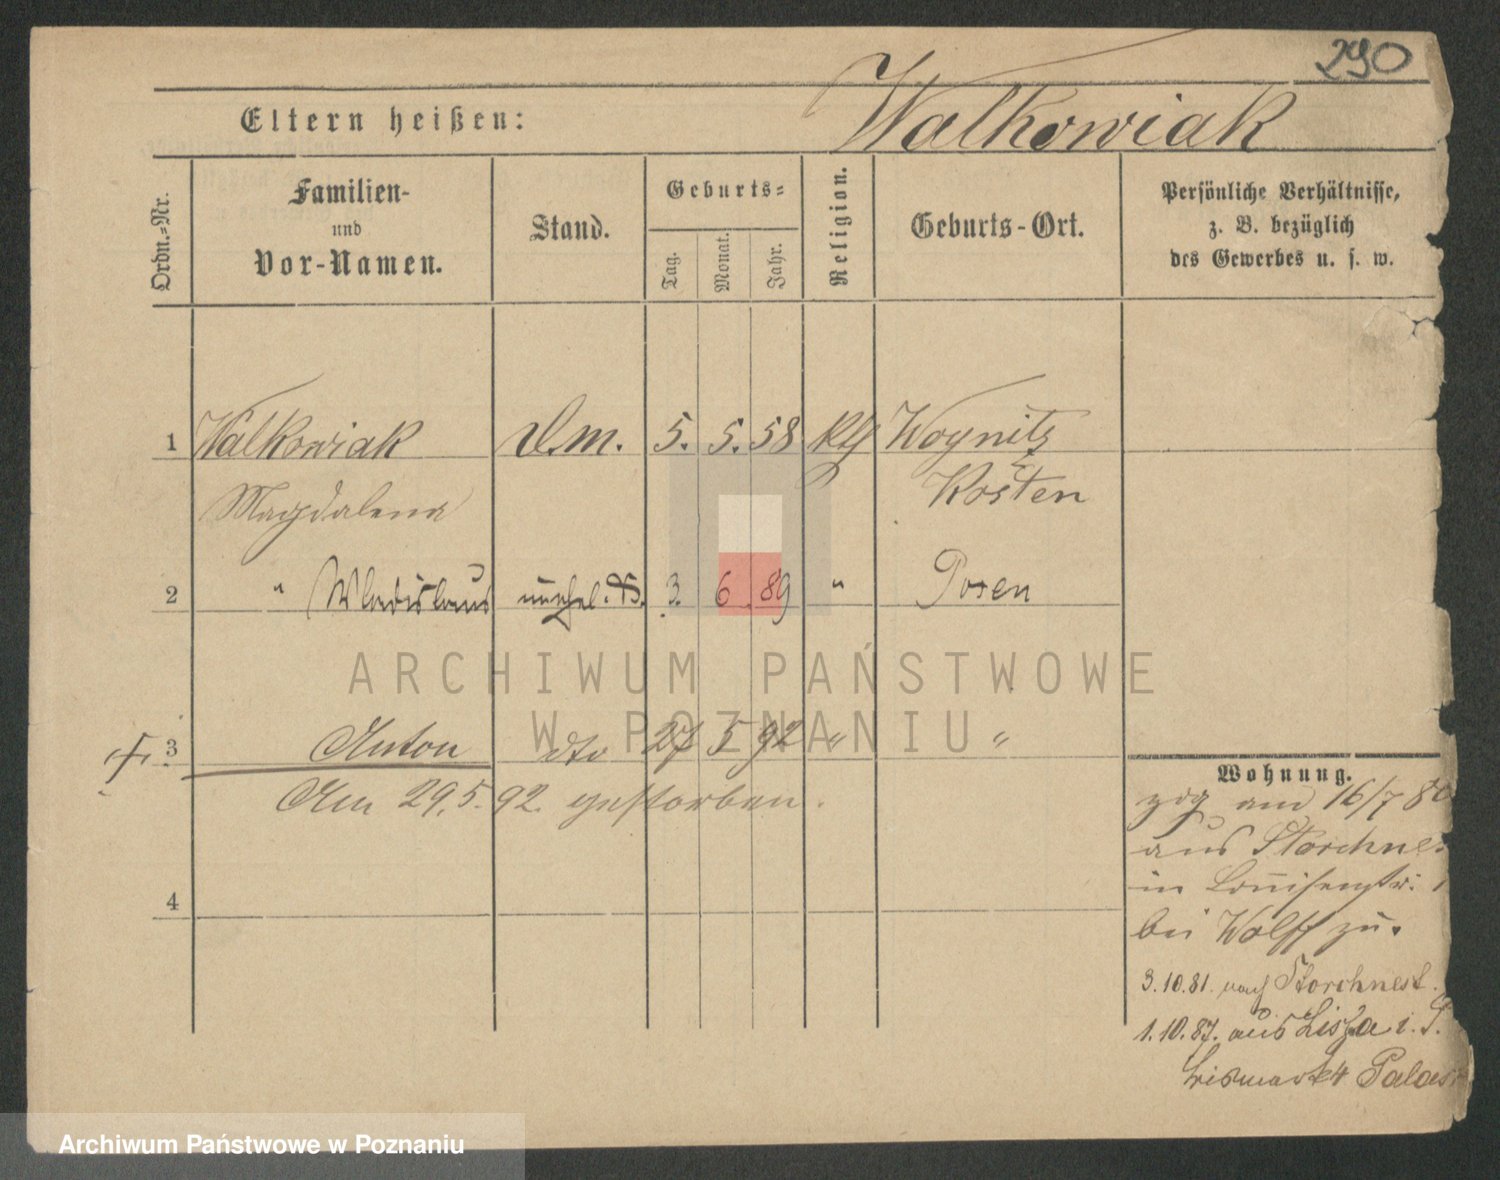 290
Eltern heißen: Walkowiak
Ordn.-Nr.
Familien-
und
Vor-Namen.
Stand.
Geburts-
Tag.
Monat.
Jahr.
Religion.
Geburts-Ort.
Persönliche Verhältnisse,
z. B. bezüglich
des Gewerbes u. s. w.
1 Walkowiak D.m. 5. 5. 58 Woynitz
Magdalena Kosten
2 " Wladislaus unehel. S. 3. 6 89 " Posen
ARCHIWUM PAŃSTWOWE
W POZNANIU
3 Anton dto 27 5 92 " "
Am 29.5.92 gestorben.
4
Wohnung.
zog am 16/7 80
aus Storchne
in Louisenstr. 1
bei Wolff zu.
3.10.81. nach Storchnest.
1.10.87. aus Lissa i. P.
4
Archiwum Państwowe w Poznaniu